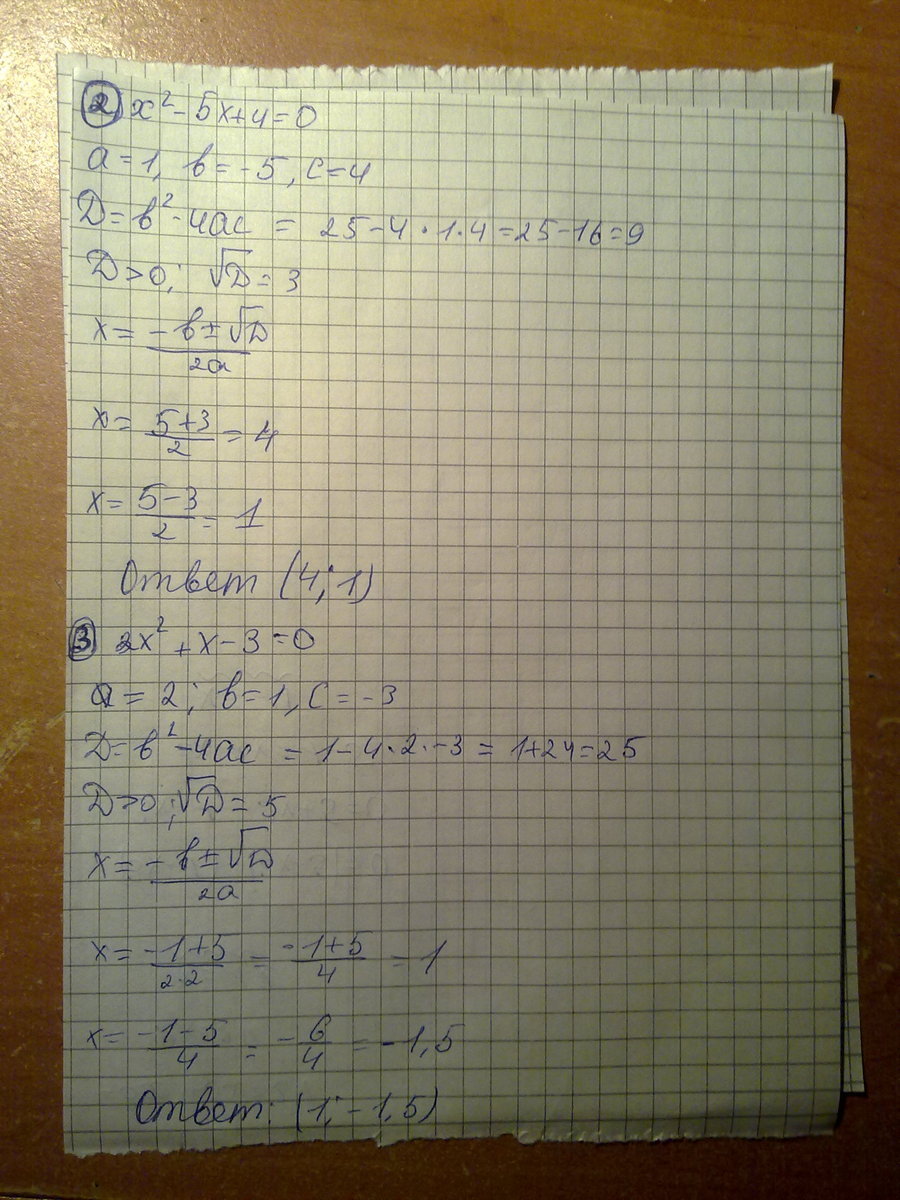 ② x² - 5x + 4 = 0
a = 1, в = -5, c = 4
Д = в² - 4ac = 25 - 4 · 1 · 4 = 25 - 16 = 9
Д > 0; √Д = 3
x = (-в ± √Д)/2a
x = (5 + 3)/2 = 4
x = (5 - 3)/2 = 1
Ответ (4; 1)
③ 2x² + x - 3 = 0
a = 2; в = 1, c = -3
Д = в² - 4ac = 1 - 4 · 2 · -3 = 1 + 24 = 25
Д > 0; √Д = 5
x = (-в ± √Д)/2a
x = (-1 + 5)/(2·2) = (-1 + 5)/4 = 1
x = (-1 - 5)/4 = -6/4 = -1,5
Ответ: (1; -1,5)